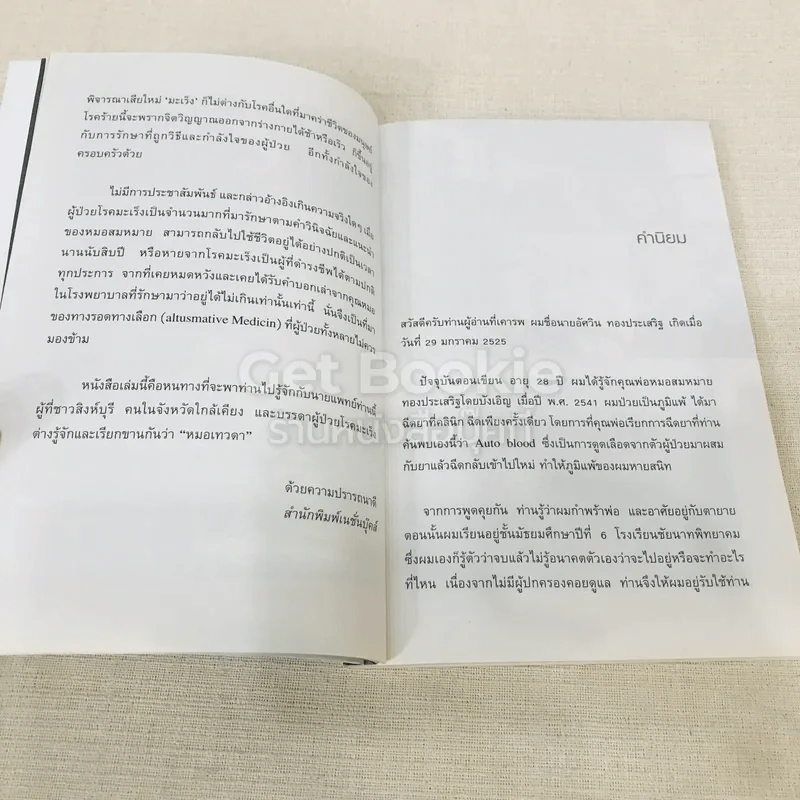 พิจารณาเสียใหม่ ‘มะเร็ง’ ก็ไม่ต่างกับโรคอื่นใดที่มาคร่าชีวิตของมนุษย์
โรคร้ายนี้จะพรากจิตวิญญาณออกจากร่างกายได้ช้าหรือเร็ว ก็ขึ้นอยู่
กับการรักษาที่ถูกวิธีและกำลังใจของผู้ป่วย อีกทั้งกำลังใจของ
ครอบครัวด้วย
ไม่มีการประชาสัมพันธ์ และกล่าวอ้างอิงเกินความจริงใดๆ เมื่อ
ผู้ป่วยโรคมะเร็งเป็นจำนวนมากที่มารักษาตามคำวินิจฉัยและแนะนำ
ของหมอสมหมาย สามารถกลับไปใช้ชีวิตอยู่ได้อย่างปกติเป็นเวลา
นานนับสิบปี หรือหายจากโรคมะเร็งเป็นผู้ที่ดำรงชีพได้ตามปกติ
ทุกประการ จากที่เคยหมดหวังและเคยได้รับคำบอกเล่าจากคุณหมอ
ในโรงพยาบาลที่รักษามาว่าอยู่ได้ไม่เกินเท่านั้นเท่านี้ นั่นจึงเป็นที่มา
ของทางรอดทางเลือก (altusmative Medicin) ที่ผู้ป่วยทั้งหลายไม่ควร
มองข้าม
หนังสือเล่มนี้คือหนทางที่จะพาท่านไปรู้จักกับนายแพทย์ท่านนี้
ผู้ที่ชาวสิงห์บุรี คนในจังหวัดใกล้เคียง และบรรดาผู้ป่วยโรคมะเร็ง
ต่างรู้จักและเรียกขานกันว่า “หมอเทวดา”
ด้วยความปรารถนาดี
สำนักพิมพ์เนชั่นบุ๊คส์
คำนิยม
สวัสดีครับท่านผู้อ่านที่เคารพ ผมชื่อนายอัศวิน ทองประเสริฐ เกิดเมื่อ
วันที่ 29 มกราคม 2525
ปัจจุบันตอนเขียน อายุ 28 ปี ผมได้รู้จักคุณพ่อหมอสมหมาย
ทองประเสริฐโดยบังเอิญ เมื่อปี พ.ศ. 2541 ผมป่วยเป็นภูมิแพ้ ได้มา
ฉีดยาที่คลินิก ฉีดเพียงครั้งเดียว โดยการที่คุณพ่อเรียกการฉีดยาที่ท่าน
ค้นพบเองนี้ว่า Auto blood ซึ่งเป็นการดูดเลือดจากตัวผู้ป่วยมาผสม
กับยาแล้วฉีดกลับเข้าไปใหม่ ทำให้ภูมิแพ้ของผมหายสนิท
จากการพูดคุยกัน ท่านรู้ว่าผมกำพร้าพ่อ และอาศัยอยู่กับตายาย
ตอนนั้นผมเรียนอยู่ชั้นมัธยมศึกษาปีที่ 6 โรงเรียนชัยนาทพิทยาคม
ซึ่งผมเองก็รู้ตัวว่าจบแล้วไม่รู้อนาคตตัวเองว่าจะไปอยู่หรือจะทำอะไร
ที่ไหน เนื่องจากไม่มีผู้ปกครองคอยดูแล ท่านจึงให้ผมอยู่รับใช้ท่าน
Get Bookie